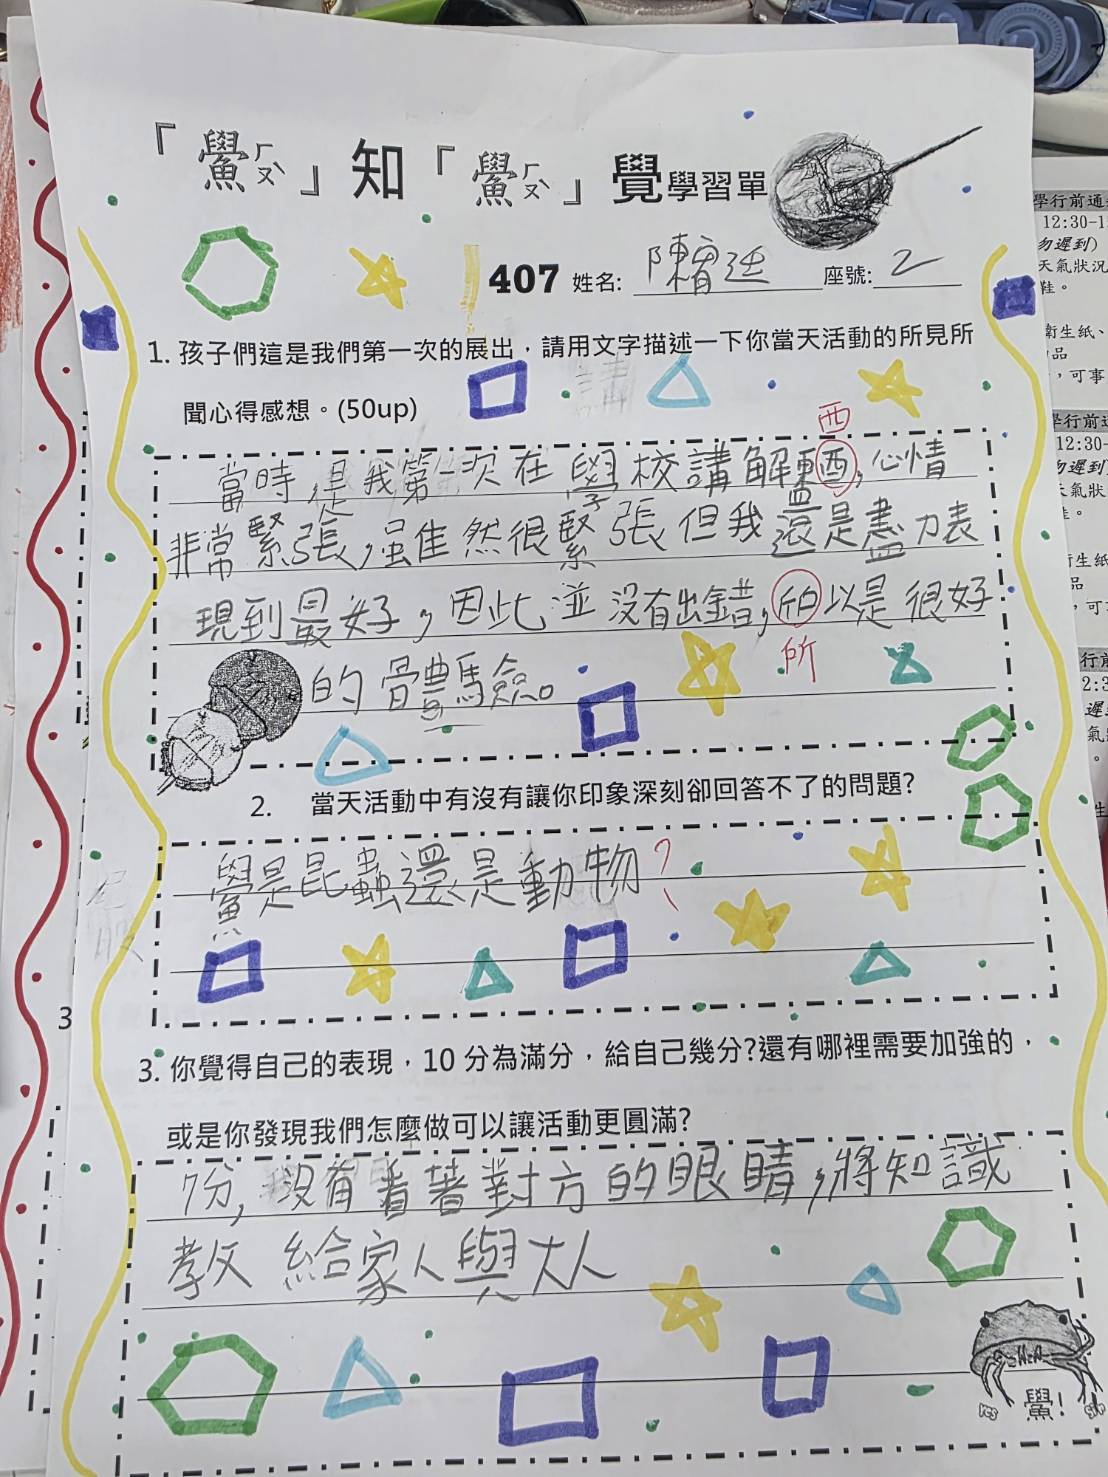 「鱟ㄏㄡˋ」知「鱟ㄏㄡˋ」覺學習單
407 姓名: 陳宥廷 座號: 2
1. 孩子們這是我們第一次的展出，請用文字描述一下你當天活動的所見所
聞心得感想。(50up)
西
當時,是我第一次在學校講解東酉,心情
非常緊張,虽隹然很緊張但我還是盡力表
現到最好,因此並沒有出錯,所以是很好
所
的體驗。
2. 當天活動中有沒有讓你印象深刻卻回答不了的問題?
鱟是昆蟲還是動物?
3. 你覺得自己的表現，10 分為滿分，給自己幾分?還有哪裡需要加強的，
或是你發現我們怎麼做可以讓活動更圓滿?
7分,沒有看著對方的眼睛,將知識
教給家人與大人
yes
鱟!
sir
學行前通
12:30-1
勿遲到)
天氣狀況
鞋。
衛生紙、
品
，可事
學行前
12:30-
勿遲到
天氣狀
3